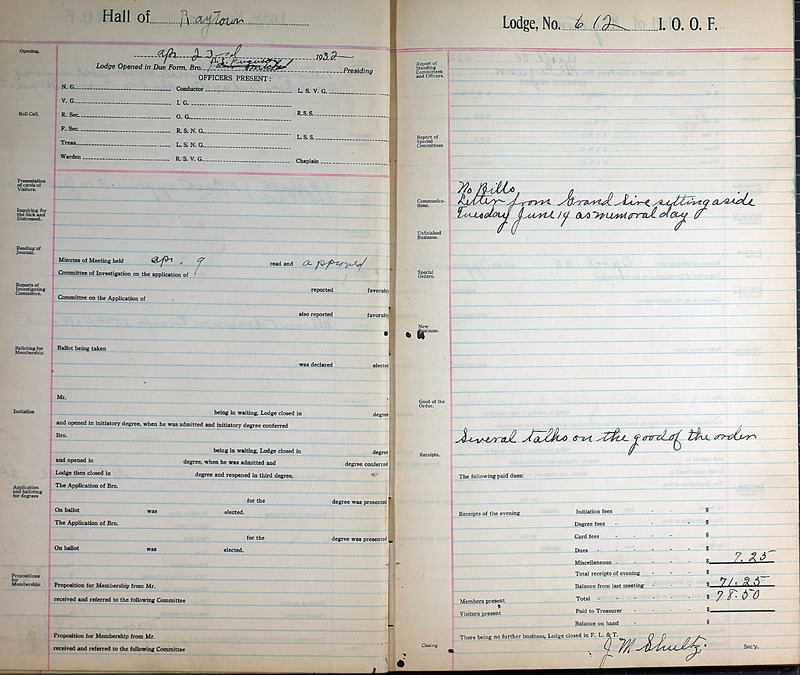 Hall of Raytown
Opening.
Apr 23rd 1932
Lodge Opened in Due Form, Bro. Presiding
OFFICERS PRESENT:
Roll Call.
N. G. Conductor L. S. V. G.
V. G. I. G.
R. Sec. O. G. R.S.S.
F. Sec. R. S. N. G.
Treas. L. S. N. G. L. S. S.
Warden R. S. V. G. Chaplain
Presentation
of cards of
Visitors.
Inquiring for
the Sick and
Distressed.
Reading of
Journal.
Minutes of Meeting held Apr. 9 read and approved
Committee of Investigation on the application of
Reports of
Investigating
Committee.
reported favorab
Committee on the Application of
also reported favorab
Balloting for
Membership.
Ballot being taken
was declared elected
Mr.
Initiation
being in waiting, Lodge closed in degree
and opened in initiatory degree, when he was admitted and initiatory degree conferred
Bro.
being in waiting, Lodge closed in degree
and opened in degree, when he was admitted and degree conferred
Lodge then closed in degree and reopened in third degree.
Application
and balloting
for degrees
The Application of Bro.
for the degree was presented
On ballot was elected.
The Application of Bro.
for the degree was presented
On ballot was elected.
Propositions
for
Membership
Proposition for Membership from Mr.
received and referred to the following Committee
Proposition for Membership from Mr.
received and referred to the following Committee
Lodge, No. 612 I. O. O. F.
Report of
Standing
Committees
and Officers.
Report of
Special
Committees
Communica-
tions.
No Bills
Letter from Grand Sire setting aside
Tuesday June 14 as memoral day
Unfinished
Business.
Special
Orders.
New
Business.
Good of the
Order.
Several talks on the good of the order
Receipts.
The following paid dues:
Receipts of the evening Initiation fees $
Degree fees $
Card fees $
Dues $
Miscellaneous $ 7.25
Total receipts of evening $
Balance from last meeting $ 71.25
Members present Total $ 78.50
Visitors present Paid to Treasurer $
Balance on hand $
There being no further business, Lodge closed in F. L. & T.
Closing J M Shultz Sec'y.